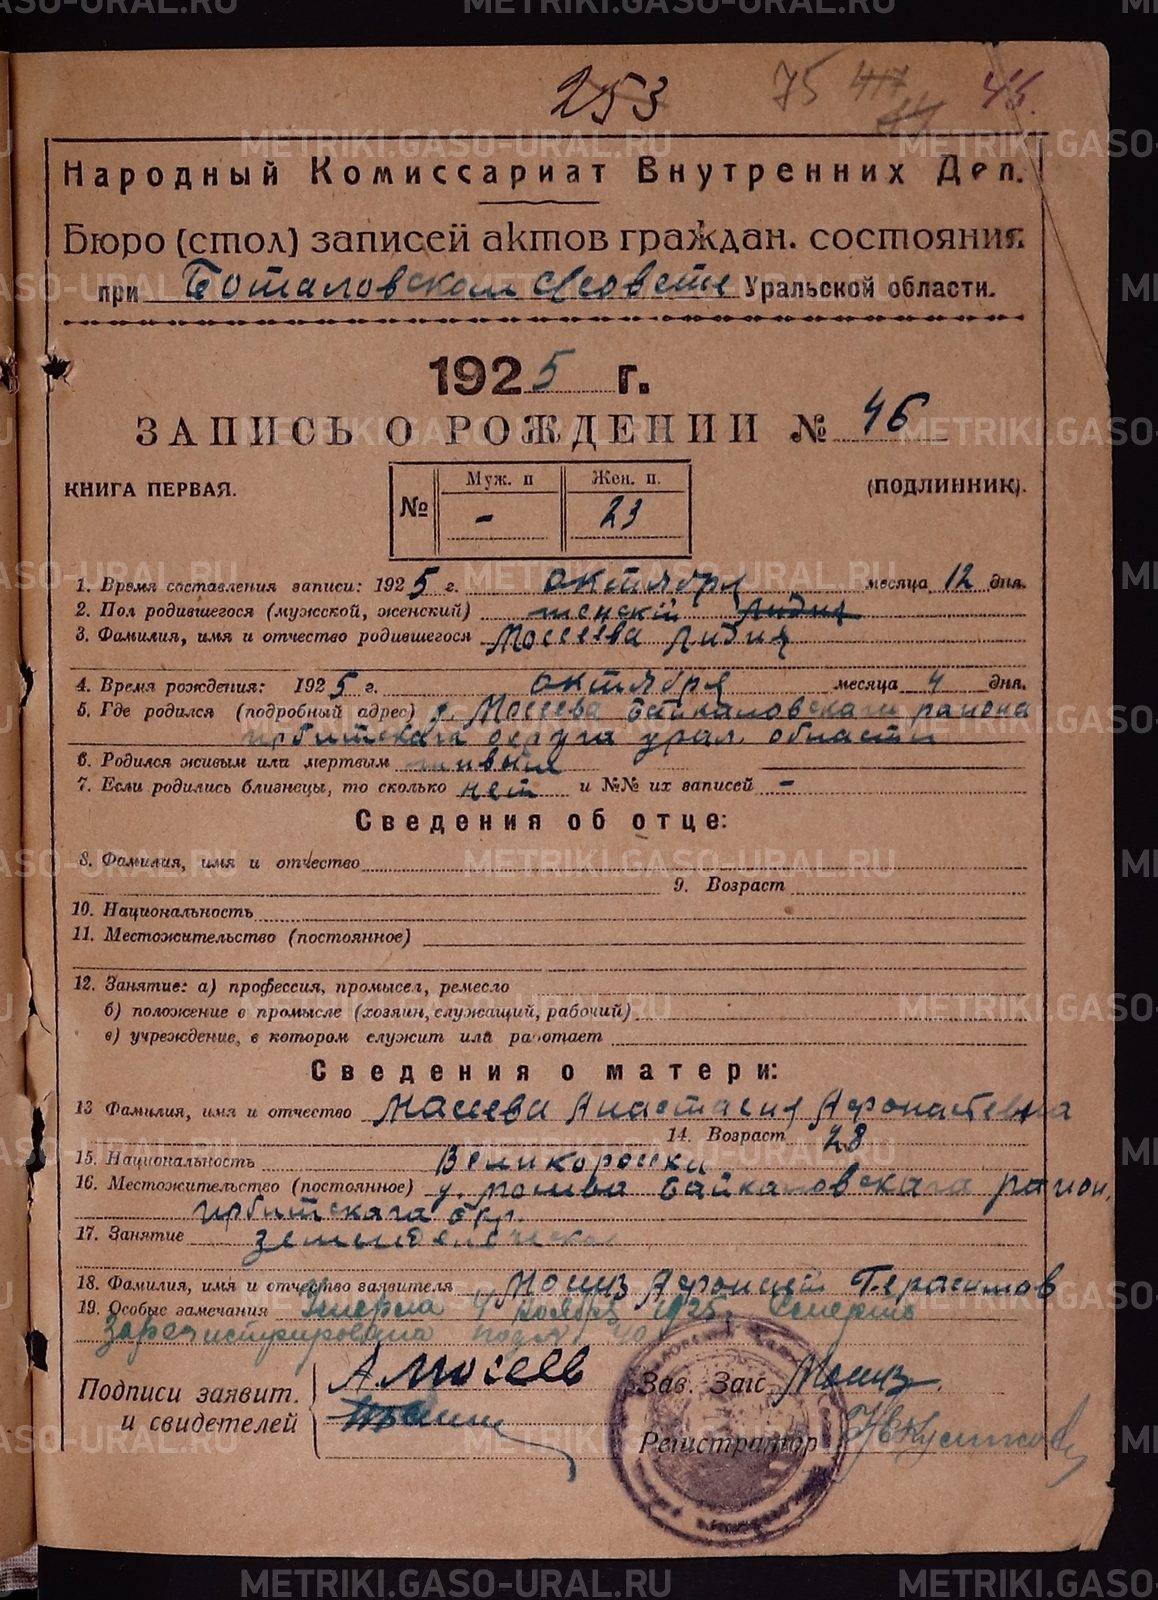 253 75 417 44 45.
Народный Комиссариат Внутренних Дел.
Бюро (стол) записей актов граждан. состояния
при Боталовском с/совете Уральской области.
1925 г.
ЗАПИСЬ О РОЖДЕНИИ № 46
КНИГА ПЕРВАЯ.
(ПОДЛИННИК).
№ Муж. п Жен. п.
- 23
1. Время составления записи: 1925 г. октября месяца 12 дня.
2. Пол родившегося (мужской, женский) женский Лидия
3. Фамилия, имя и отчество родившегося Мосеева Лидия
4. Время рождения: 1925 г. октября месяца 4 дня.
5. Где родился (подробный адрес) д. Мосеева Байкаловскаго района
ирбитскага округа урал. области
6. Родился живым или мертвым живым
7. Если родились близнецы, то сколько нет и №№ их записей -
Сведения об отце:
8. Фамилия, имя и отчество
9. Возраст
10. Национальность
11. Местожительство (постоянное)
12. Занятие: а) профессия, промысел, ремесло
б) положение в промысле (хозяин, служащий, рабочий)
в) учреждение, в котором служит или работает
Сведения о матери:
13 Фамилия, имя и отчество Масеева Анастасия Афонастевна
14. Возраст 28
15. Национальность Великороска
16. Местожительство (постоянное) д. Байкаловскага район.
ирбитскага окр.
17. Занятие
18. Фамилия, имя и отчество заявителя Герасимов
19. Особые замечания Умерла 4 ноября 1925. Смерть
Зарегистрирована под № 40
Подписи заявит.
и свидетелей
А Мосеев
Зав. Загс
Регистратор
METRIKI.GASO-URAL.RU